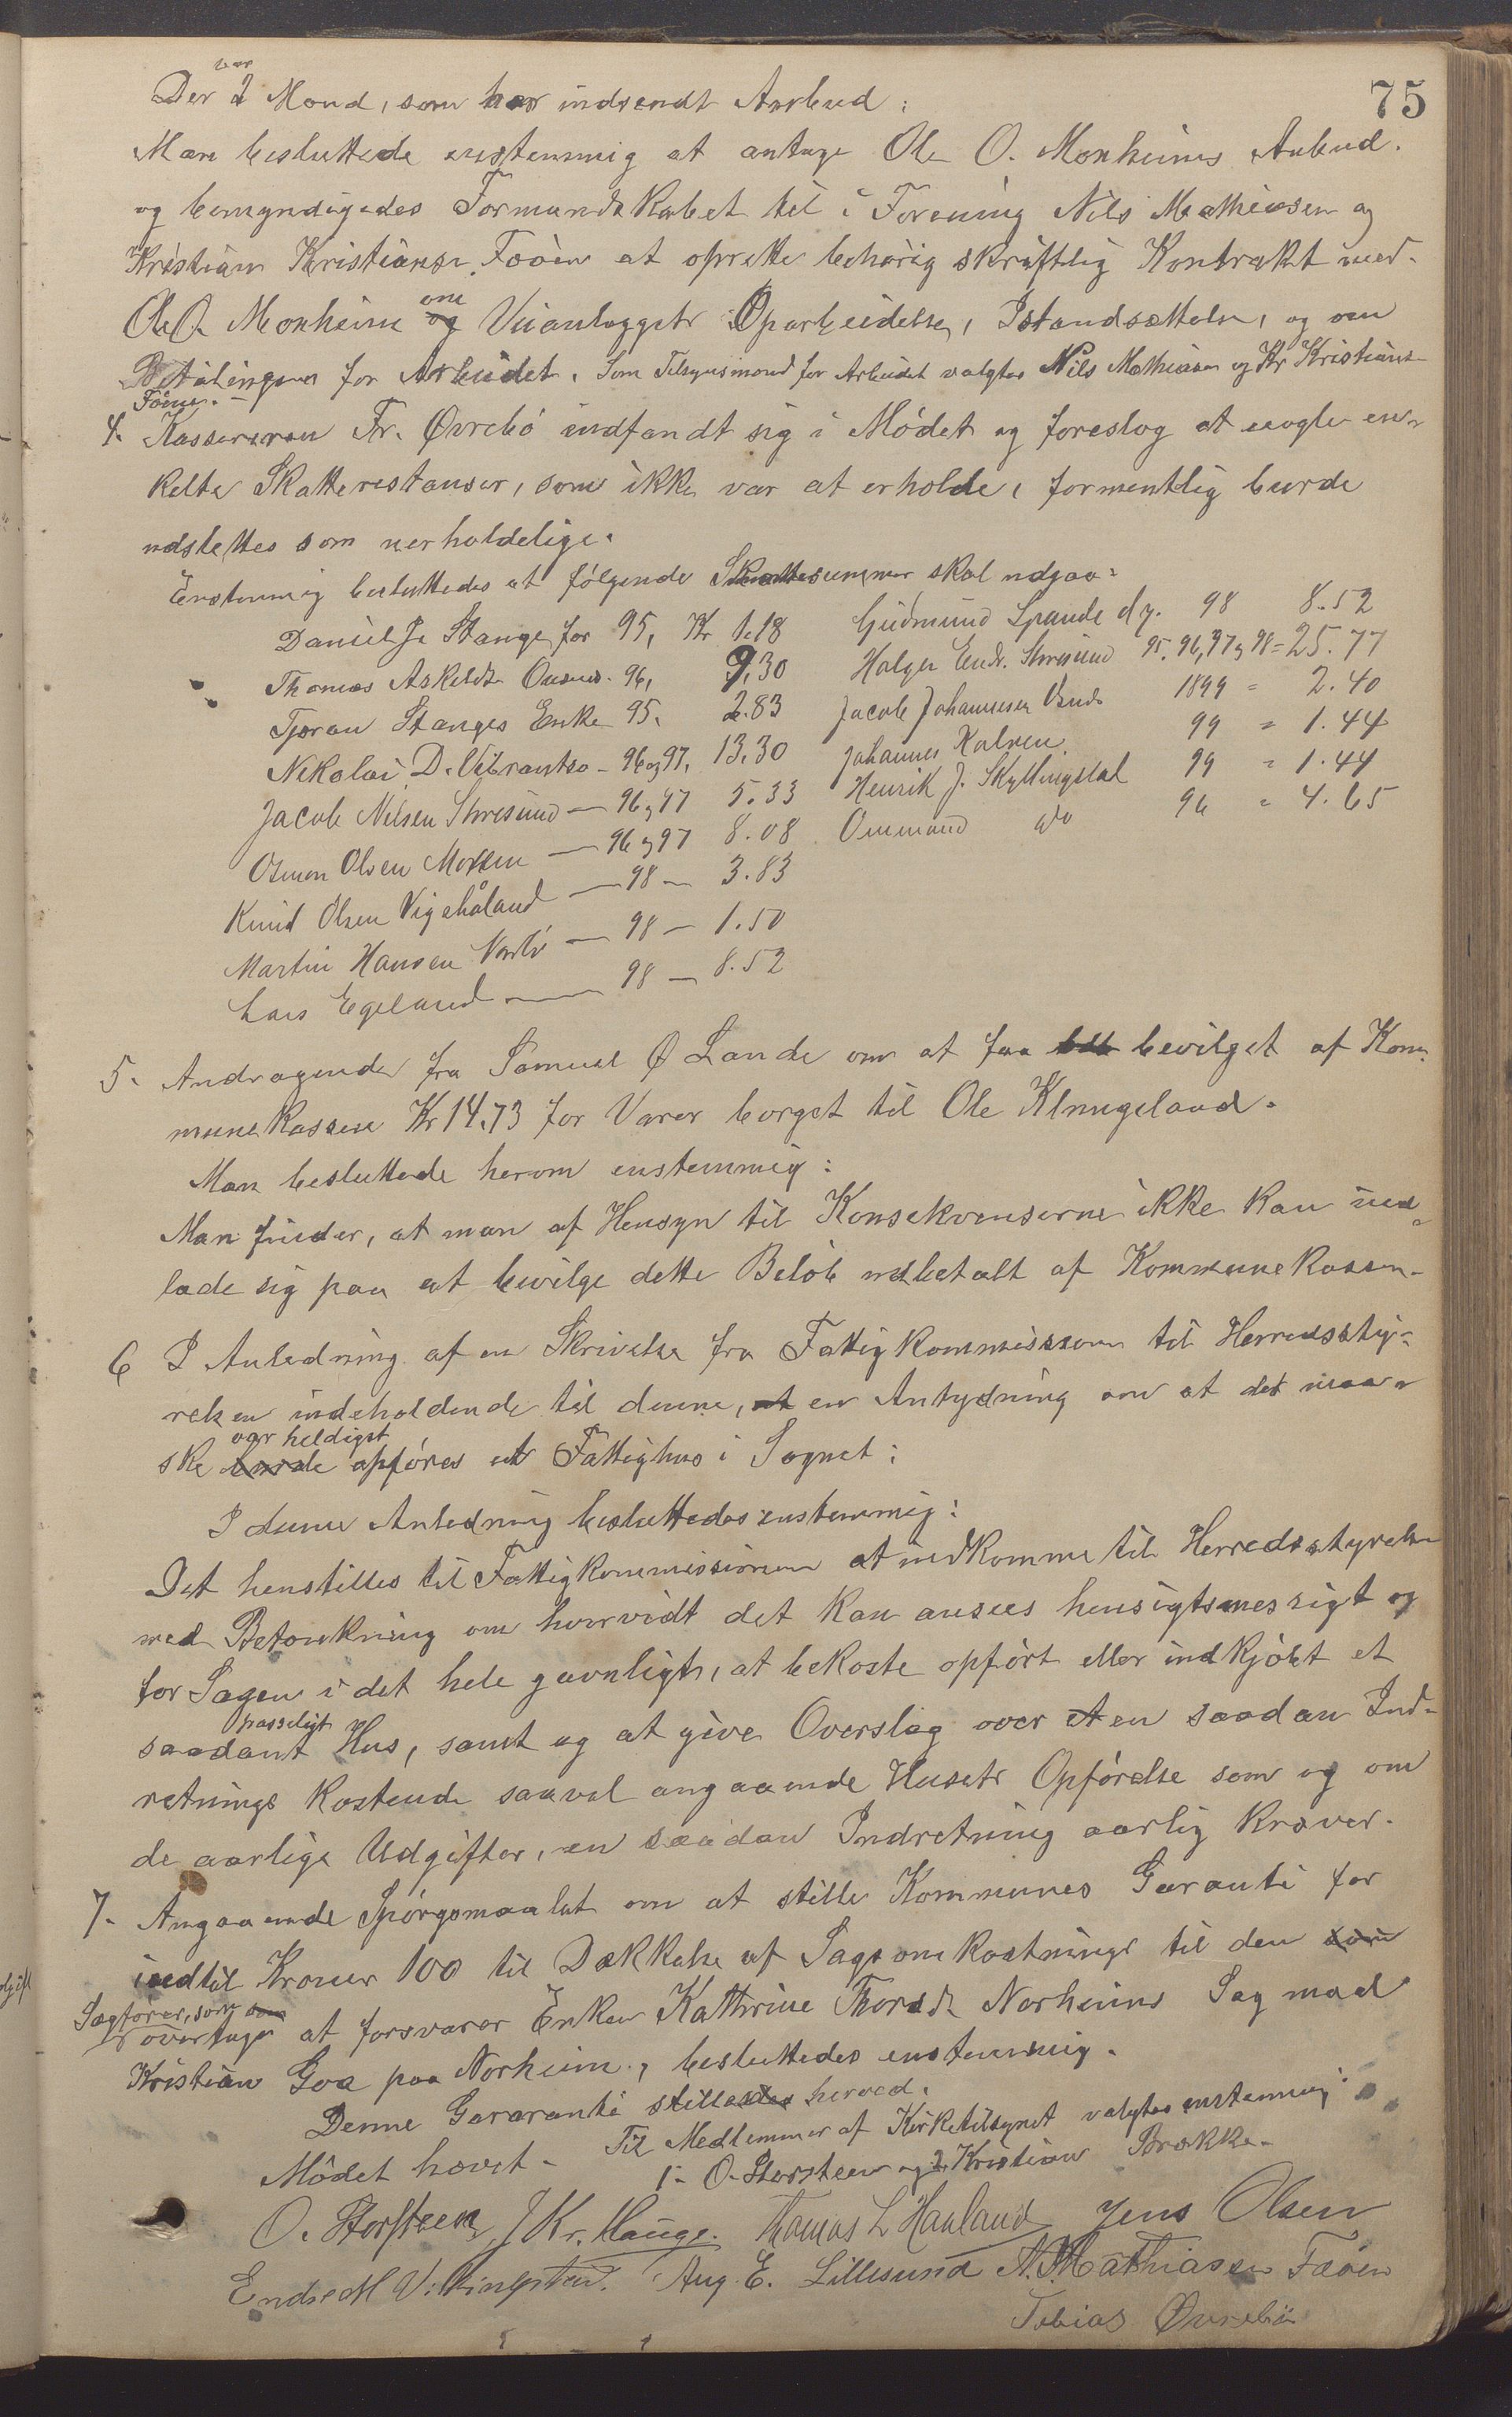 75
Der var 2 Mænd, som har indsendt Anbud:
Man besluttede enstemmig at antage Ole O. Monheims Anbud.
og bemyndigedes Formandskabet til i Forening Nils Mathiasen og
Kristian Kristians. Føøen at oprette behørig skriftlig Kontrakt med
Ole O. Monheim om Veianlæggets Oparbeidelse, Istandsættelse, og om
Betalingen for Arbeidet. Som Tilsynsmænd for Arbeidet valgtes Nils Mathiasen og Kr Kristians
Føen.
4. Kassereren Fr. Øvrebö indfandt sig i Mödet og foreslog at nogle en-
kelte Skatterestanser, som ikke var at erholde, formentlig burde
udslettes som uerholdelige.
Enstemmig besluttedes at følgende Skattesummer skal udgaa:
Daniel J. Stange for 95, Kr 1.18
Thomas Askelds. 96, 9.30
Tjøran Stanges Enke 95. 2.83
Nikolai D. Vibrantsø - 96 og 97, 13.30
Jacob Nilsen Storesund - 96 og 97 5.33
Osmon Olsen Moksen - 96 og 97 8.08
Knud Olsen Vigehåland - 98 - 3.83
Martin Hansen - 98 - 1.50
Lars Egeland - 98 - 8.52
Gudmund Spande dy. 98 8.52
Holger Endr. Storesund 95. 96, 97 og 98 = 25.77
Jacob Johannesen 1899 = 2.40
Johannes Kalven. 99 = 1.44
Henrik J. Skyllingstad 99 = 1.44
Ommund do 96 = 4.65
5. Andragende fra Samuel Ø Lande om at faa bevilget af Kom-
munekassen Kr 14.73 for Varer borget til Ole Klungeland.
Man besluttede herom enstemmig:
Man finder, at man af Hensyn til Konsekvenserne ikke kan ind-
lade sig paa at bevilge dette Beløb udbetalt af Kommunekassen.
6 I Anledning af en Skrivelse fra Fattigkommissionen til Herredssty-
relsen indeholdende til denne, en Antydning om at det maa-
ske var heldigst opføres et Fattighus i Sognet:
I denne Anledning besluttedes enstemmig:
Det henstilles til Fattigkommissionen at indkomme til Herredsstyrelsen
med Betænkning om hvorvidt det kan ansees hensigtsmessigt og
for Sagen i det hele gavnligt, at bekoste opført eller indkjöbt et
saadant passeligt Hus, samt og at give Overslag over en saadan Ind-
retnings Kostende saavel angaaende Husets Opförelse som og om
de aarlige Udgifter, en saadan Indretning aarlig kræver.
7. Angaaende Spörgsmaalet om at stille Kommunes Garanti for
indtil Kroner 100 til Dækkelse af Sagsomkostninger til den
Sagförer, som overtager at forsvarer Enken Kathrine Thorsds Norheims Sag mod
Kristian Goa paa Norheim, besluttedes enstemmig.
Denne Gararanti stilles herved.
Til Medlemmer af Kirketilsynet valgtes enstemmig:
Mödet hævet. 1. O. Storsteen og 2. Kristian Brække.
O. Storsteen J Kr. Hauge. Thomas L Hauland Jens Olsen
Endre M Vikingstad. Aug. E. Lillesund N. Mathiassen Føøen
Tobias Øvrebö